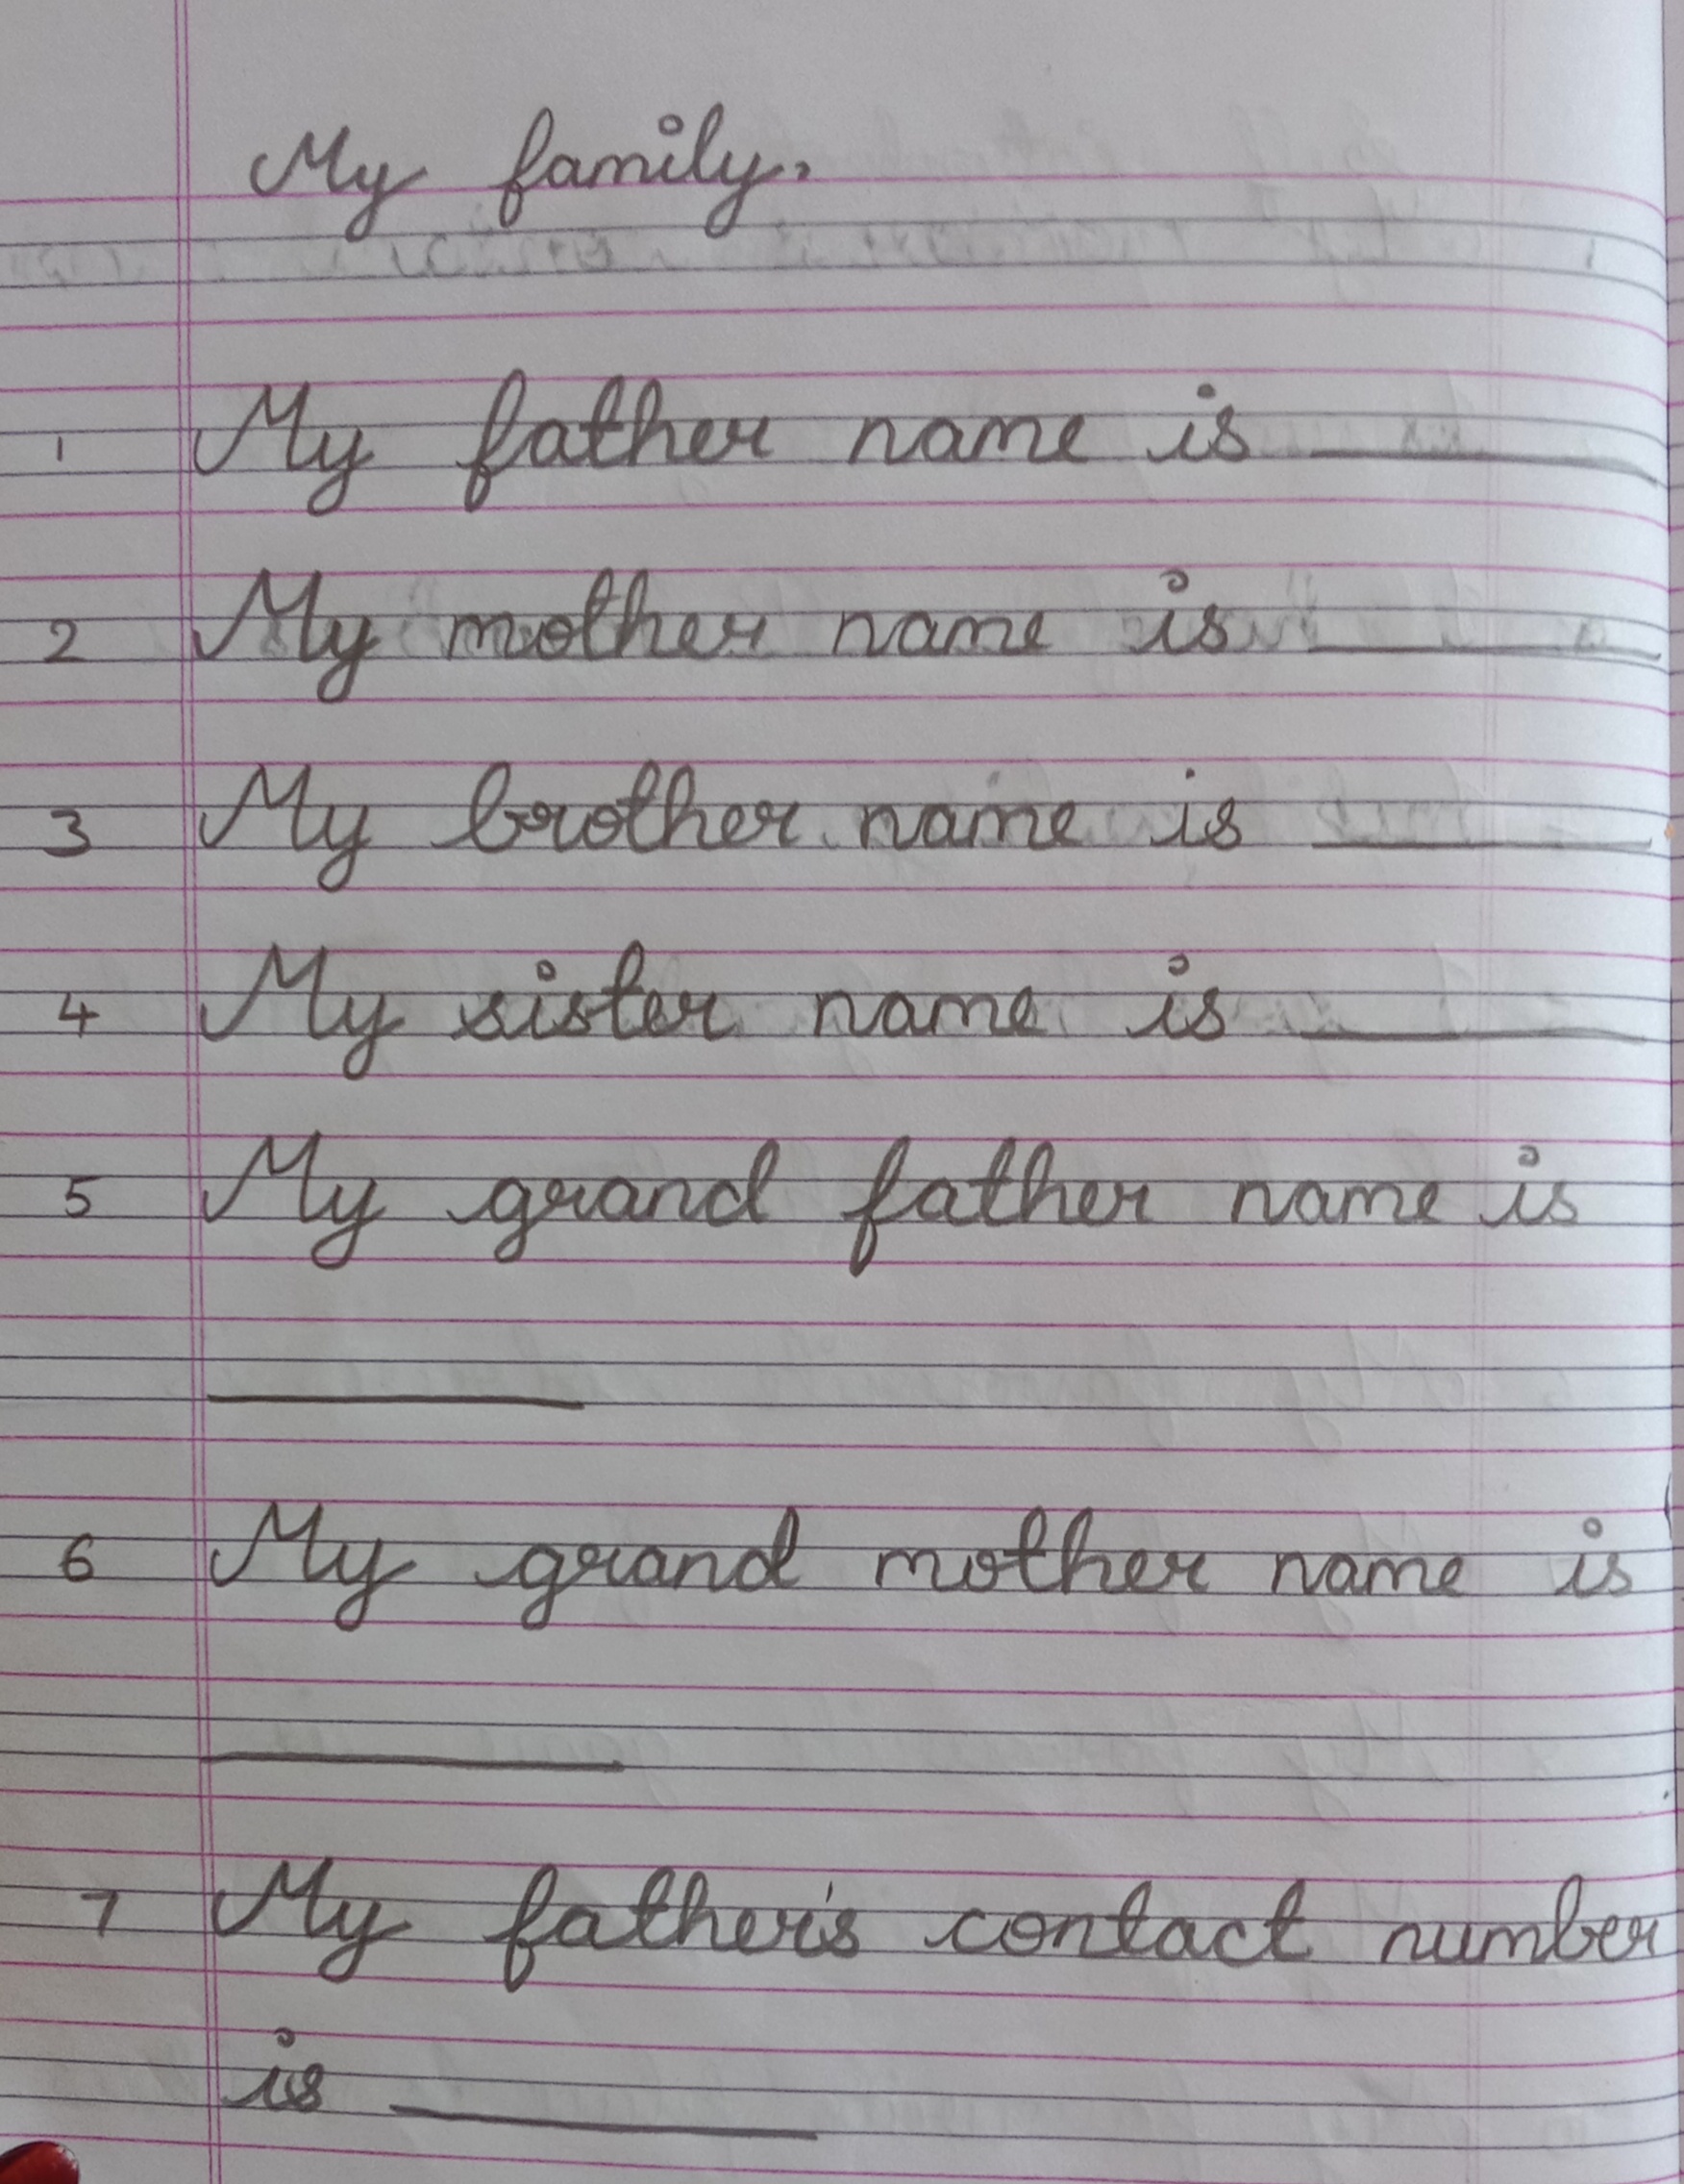 My family.
1 My father name is ______
2 My mother name is ______
3 My brother name is ______
4 My sister name is ______
5 My grand father name is
______
6 My grand mother name is
______
7 My father's contact number
is ______